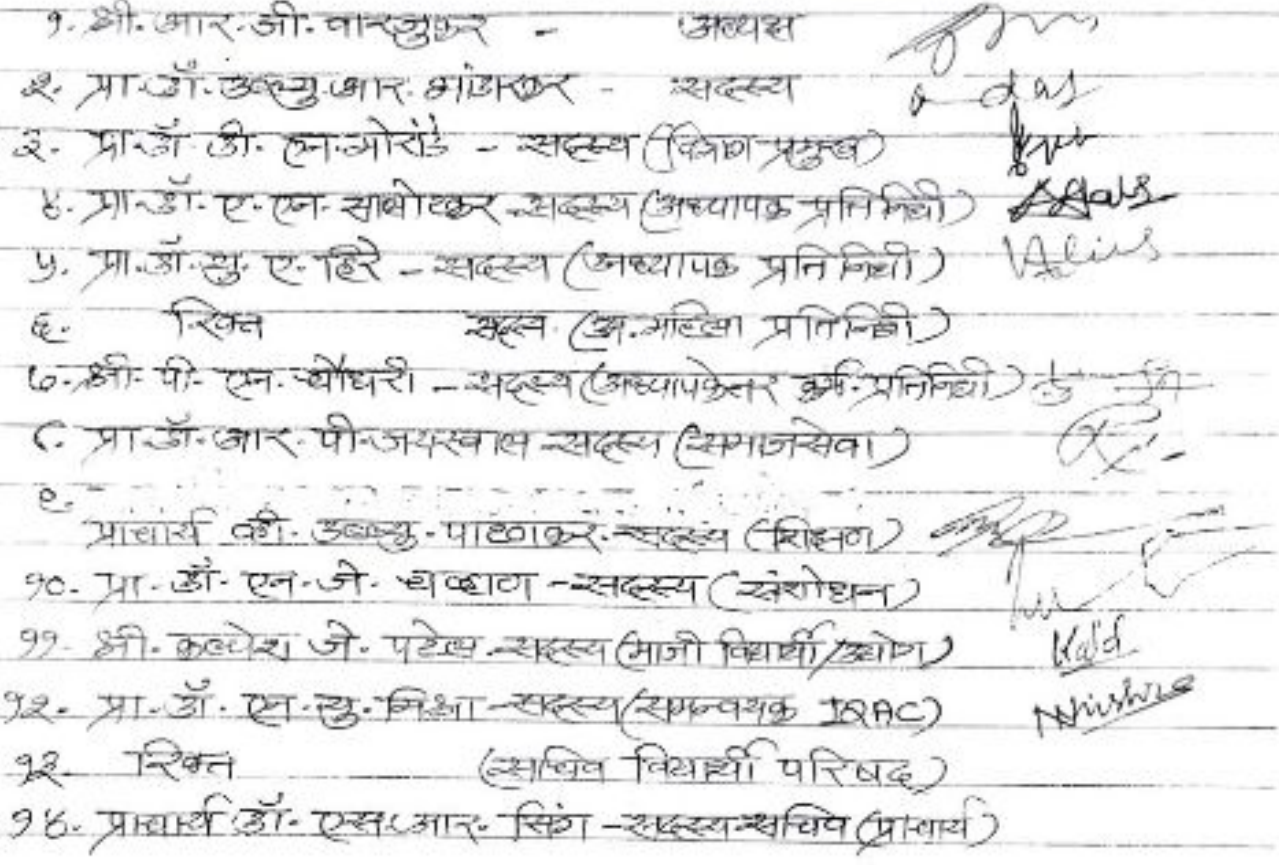 १. श्री. आर. जी. वारजुकर - अध्यक्ष
२. प्रा. डॉ. डब्ल्यु. आर. भांडारकर - सदस्य
३. प्रा. डॉ. डी. एन. मोरांडे - सदस्य (विभाग प्रमुख)
४. प्रा. डॉ. ए. एन. साखोटकर - सदस्य (अध्यापक प्रतिनिधी)
५. प्रा. डॉ. यु. ए. हिरे - सदस्य (अध्यापक प्रतिनिधी)
६. रिक्त सदस्य (अ. महिला प्रतिनिधी)
७. श्री. पी. एन. चौधरी - सदस्य (अध्यापकेतर कर्म. प्रतिनिधी)
८. प्रा. डॉ. आर. पी. जयस्वाल - सदस्य (समाजसेवा)
९.
प्राचार्य व्ही. डब्ल्यु. पाठणकर - सदस्य (शिक्षण)
१०. प्रा. डॉ. एन. जे. चव्हाण - सदस्य (संशोधन)
११. श्री. कल्पेश जे. पटेल - सदस्य (माजी विद्यार्थी/उद्योग)
१२. प्रा. डॉ. एन. यु. मिश्रा - सदस्य (समन्वयक IQAC)
१३ रिक्त (सचिव विद्यार्थी परिषद)
१४. प्राचार्य डॉ. एस. आर. सिंग - सदस्य सचिव (प्राचार्य)